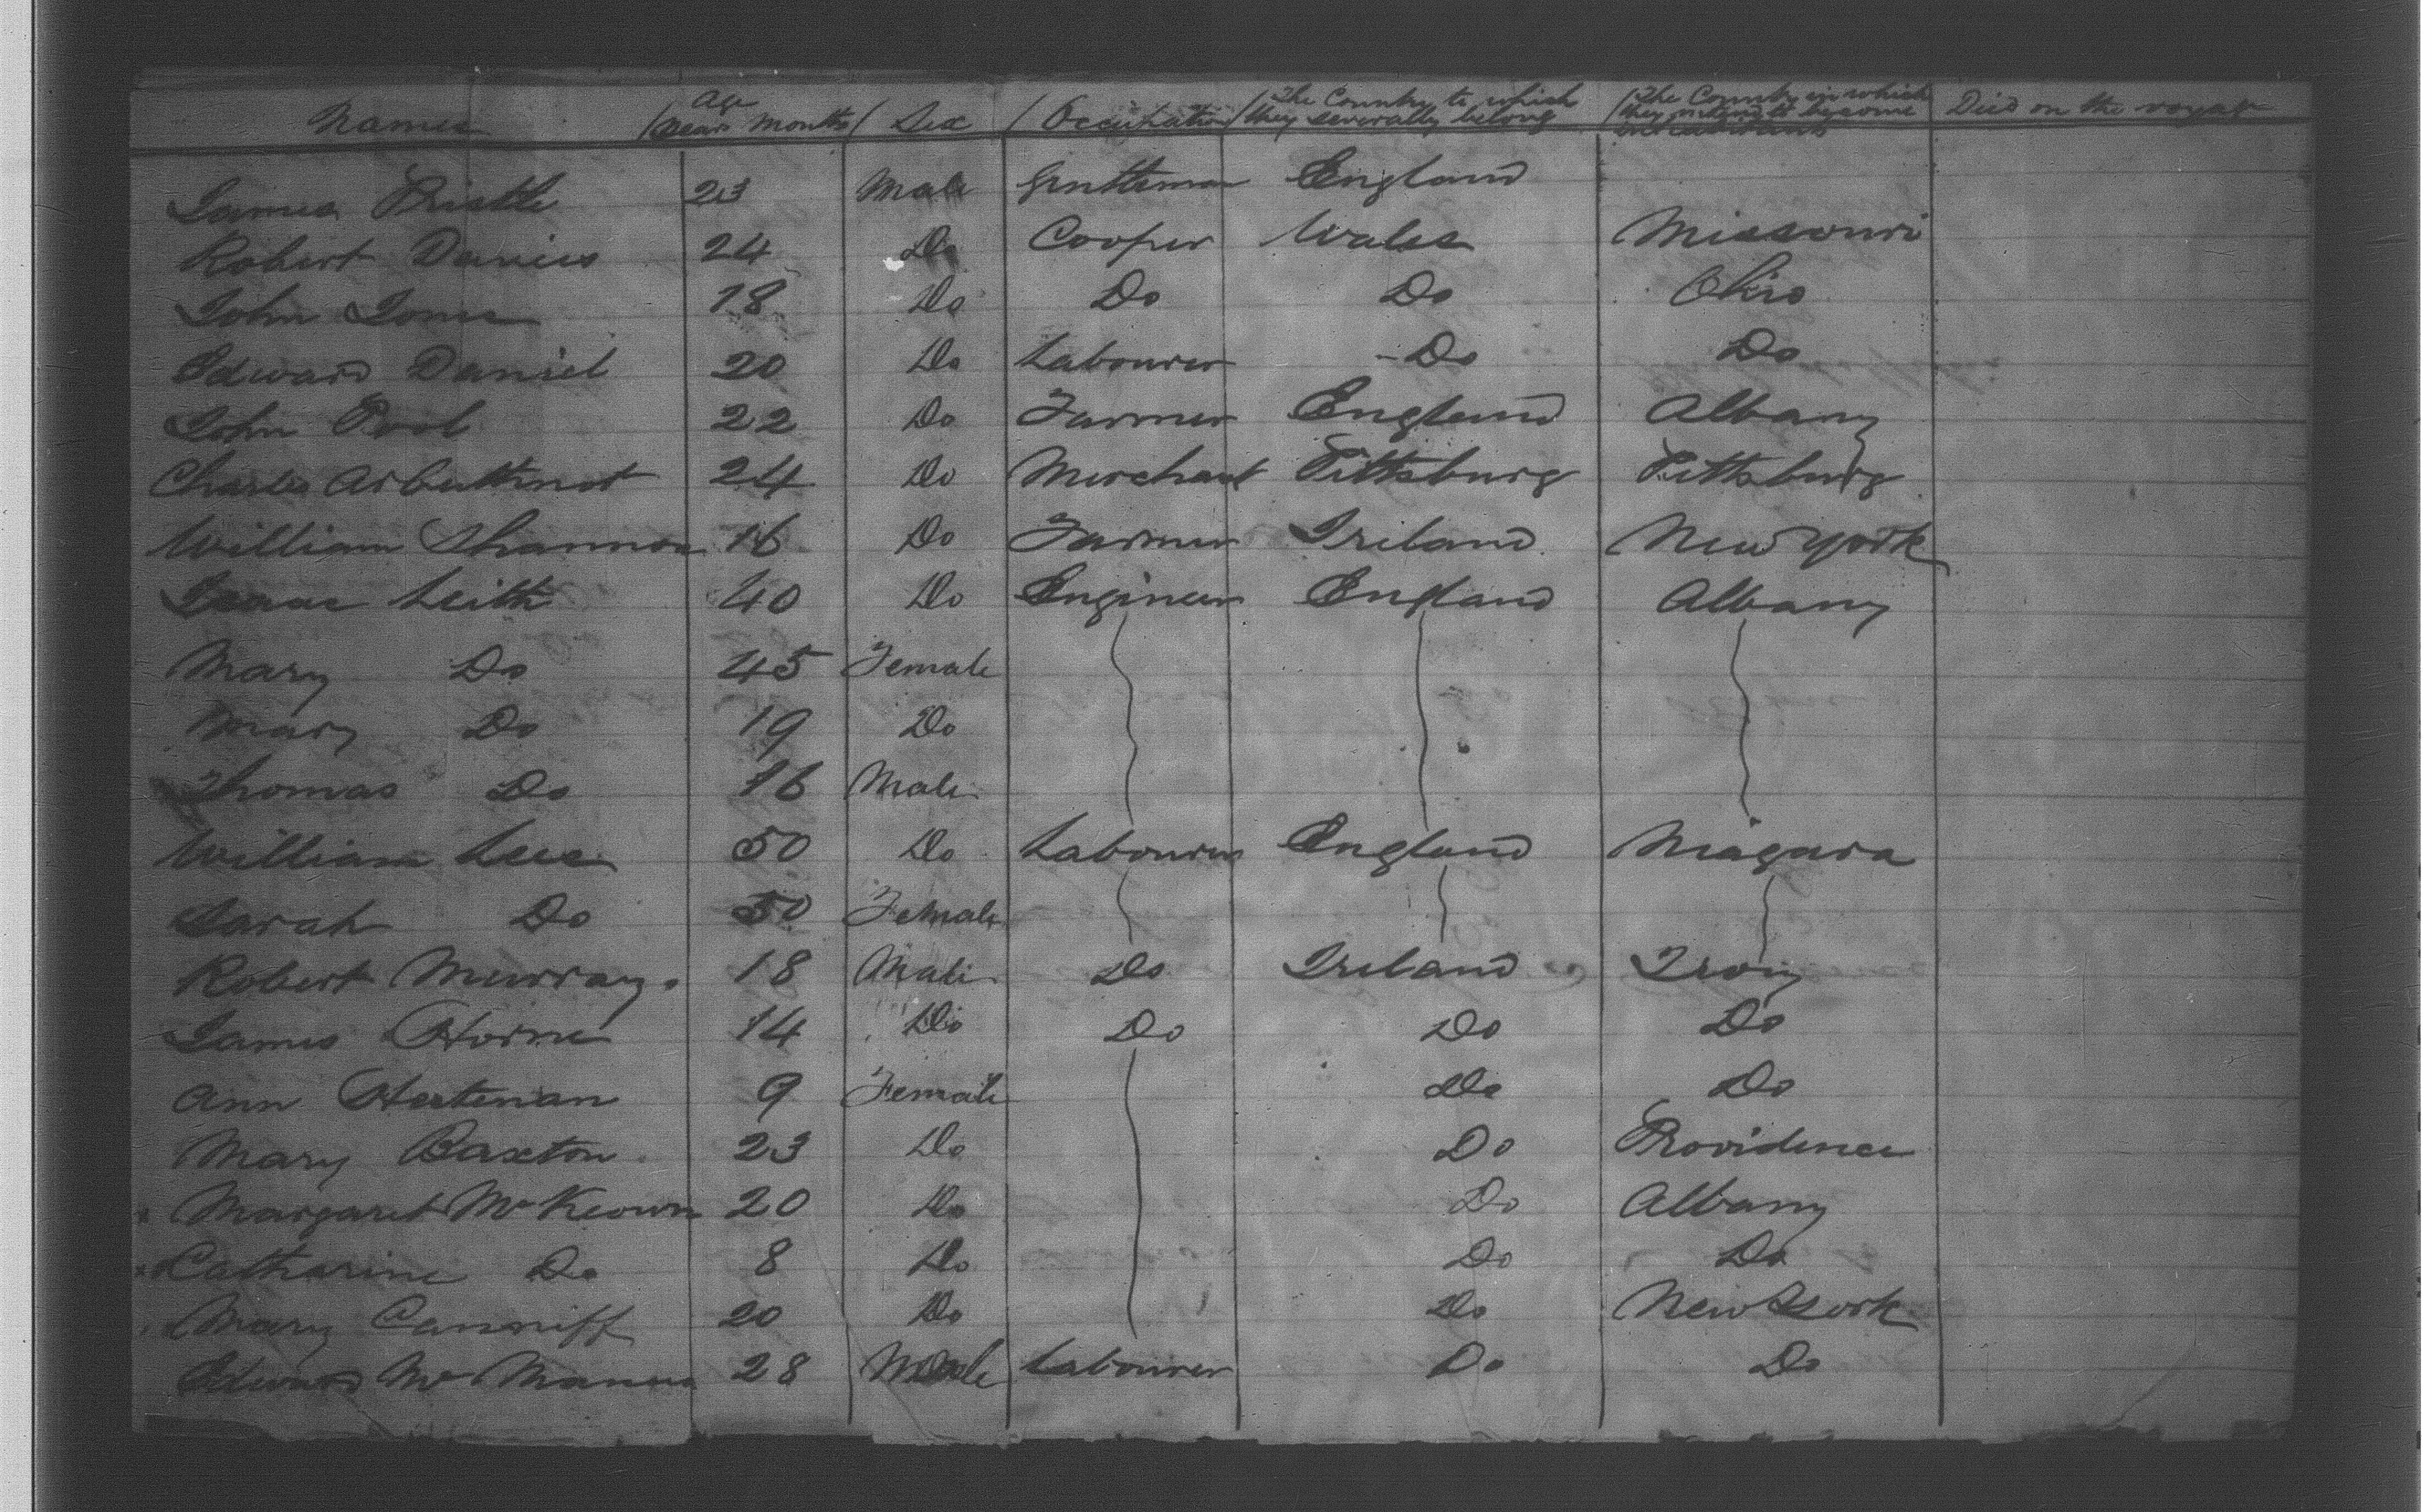 Names / Age years months / Sex / Occupation / The Country to which they severally belong / The Country in which they intend to become inhabitants Died on the voyage
James 23 Male Gentleman England
Robert Davies 24 Do Cooper Wales Missouri
John Jones 18 Do Do Do Ohio
Edward Daniel 20 Do Labourer Do Do
John Pool 22 Do Farmer England Albany
Charles Arbuthnot 24 Do Merchant Pittsburg Pittsburg
William Shannon 16 Do Farmer Ireland New York
Isaac Leith 40 Do Engineer England Albany
Mary Do 45 Female
Mary Do 19 Do
Thomas Do 16 Male
William 50 Do Labourer England Niagara
Sarah Do 50 Female
Robert Murray 18 Male Do Ireland Troy
James Horne 14 Do Do Do Do
Ann 9 Female Do Do
Mary Baxton 23 Do Do Providence
Margaret McKeown 20 Do Do Albany
Catharine Do 8 Do Do Do
Mary Canniff 20 Do Do New York
Edward Mc Manus 28 Male Labourer Do Do